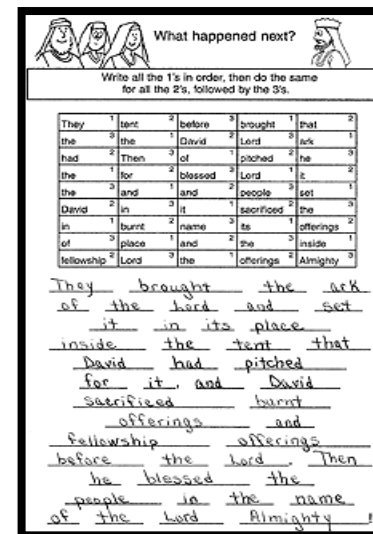 What happened next?
Write all the 1's in order, then do the same
for all the 2's, followed by the 3's.
They 1 tent 2 before 3 brought 1 that 2
the 3 the 1 David 2 Lord 3 ark 1
had 2 Then 3 of 1 pitched 2 he 3
the 1 for 2 blessed 3 Lord 1 it 2
the 3 and 1 and 2 people 3 set 1
David 2 in 3 it 1 sacrificed 2 the 3
in 1 burnt 2 name 3 its 1 offerings 2
of 3 place 1 and 2 the 3 inside 1
fellowship 2 Lord 3 the 1 offerings 2 Almighty 3
They brought the ark
of the Lord and set
it in its place
inside the tent that
David had pitched
for it, and David
sacrificed burnt
offerings and
fellowship offerings
before the Lord. Then
he blessed the
people in the name
of the Lord Almighty!